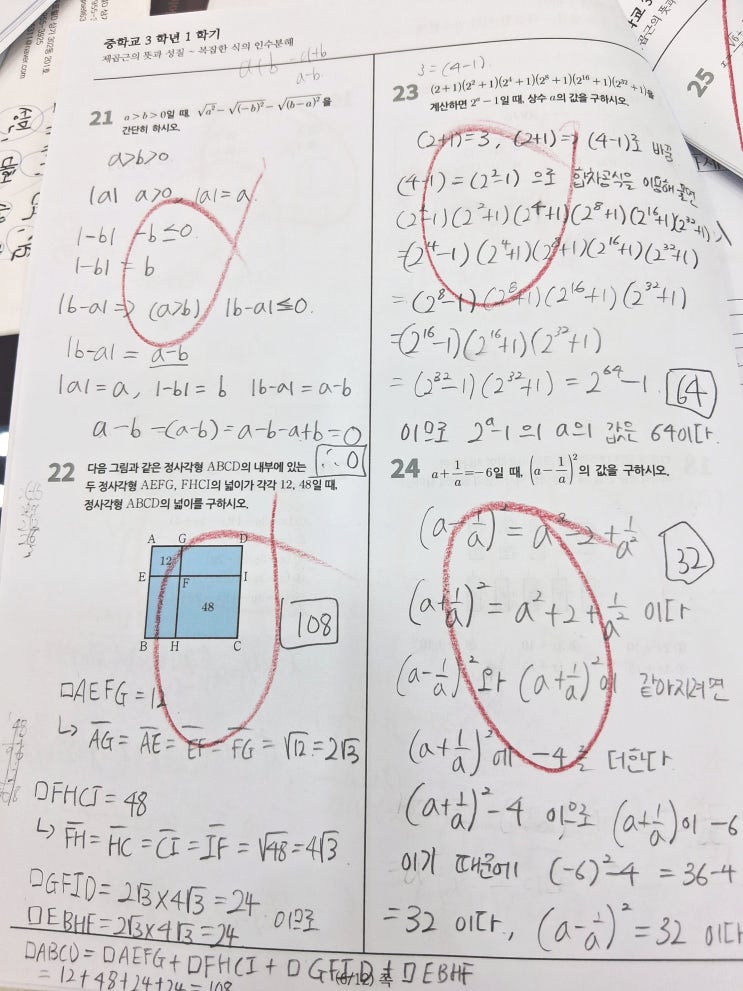 중학교 3 학년 1 학기
제곱근의 뜻과 성질 ~ 복잡한 식의 인수분해
21 a > b > 0일 때, √a² − √(−b)² − √(b−a)² 을
간단히 하시오.
a>b>0
|a| a>0, |a| = a
|-b| -b ≤ 0
|-b| = b
|b-a| ⇒ (a>b) |b-a| ≤ 0.
|b-a| = a-b
|a| = a, |-b| = b |b-a| = a-b
a-b-(a-b) = a-b-a+b = 0
∴ 0
22 다음 그림과 같은 정사각형 ABCD의 내부에 있는
두 정사각형 AEFG, FHCI의 넓이가 각각 12, 48일 때,
정사각형 ABCD의 넓이를 구하시오.
A G D
12
E F I
48
B H C
108
□AEFG = 12
↳ AG = AE = EF = FG = √12 = 2√3
□FHCI = 48
↳ FH = HC = CI = IF = √48 = 4√3
□GFID = 2√3 × 4√3 = 24
□EBHF = 2√3 × 4√3 = 24 이므로
□ABCD = □AEFG + □FHCI + □GFID + □EBHF
= 12 + 48 + 24 + 24 = 108
3 = (4-1)
23 (2+1)(2²+1)(2⁴+1)(2⁸+1)(2¹⁶+1)(2³²+1)을
계산하면 2ᵃ − 1일 때, 상수 a의 값을 구하시오.
(2+1) = 3, (2+1) ⇒ (4-1)로 바꿈
(4-1) = (2²-1) 으로 합차공식을 이용해 풀면
(2²-1)(2²+1)(2⁴+1)(2⁸+1)(2¹⁶+1)(2³²+1)
= (2⁴-1)(2⁴+1)(2⁸+1)(2¹⁶+1)(2³²+1)
= (2⁸-1)(2⁸+1)(2¹⁶+1)(2³²+1)
= (2¹⁶-1)(2¹⁶+1)(2³²+1)
= (2³²-1)(2³²+1) = 2⁶⁴-1 64
이므로 2ᵃ-1 의 a의 값은 64이다.
24 a + 1/a = −6일 때, (a − 1/a)² 의 값을 구하시오.
(a-1/a)² = a²-2+1/a²
32
(a+1/a)² = a²+2+1/a² 이다
(a-1/a)² 와 (a+1/a)² 이 같아지려면
(a+1/a)² 에 -4를 더한다
(a+1/a)²-4 이므로 (a+1/a)이 -6
이기 때문에 (-6)²-4 = 36-4
= 32 이다., (a-1/a)² = 32 이다
(6/12) 쪽
25